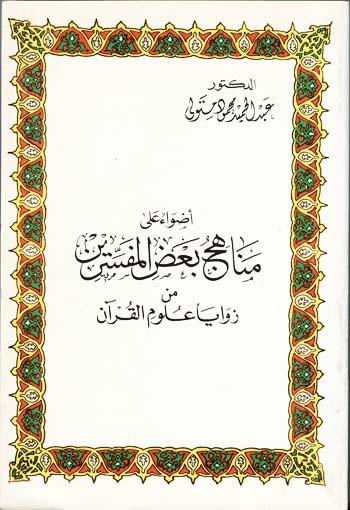 الدكتور
عبد الحميد محمود متولي
أضواء على
مناهج بعض المفسرين
من
زوايا علوم القرآن